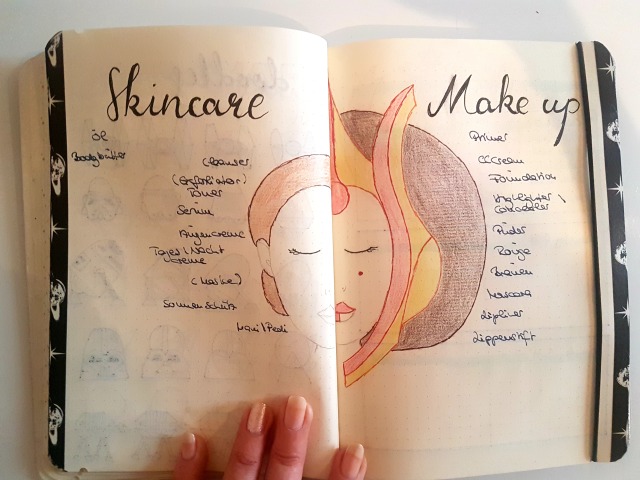 Skincare
Öl
Bodybutter
Cleanser
Toner
Serum
Augencreme
Tages\Nacht
creme
(Maske)
Sonnenschutz
Mani\Pedi
Make up
Primer
CCCream
Foundation
Highlighter \
Puder
Rouge
Brauen
Mascara
Lipliner
Lippenstift